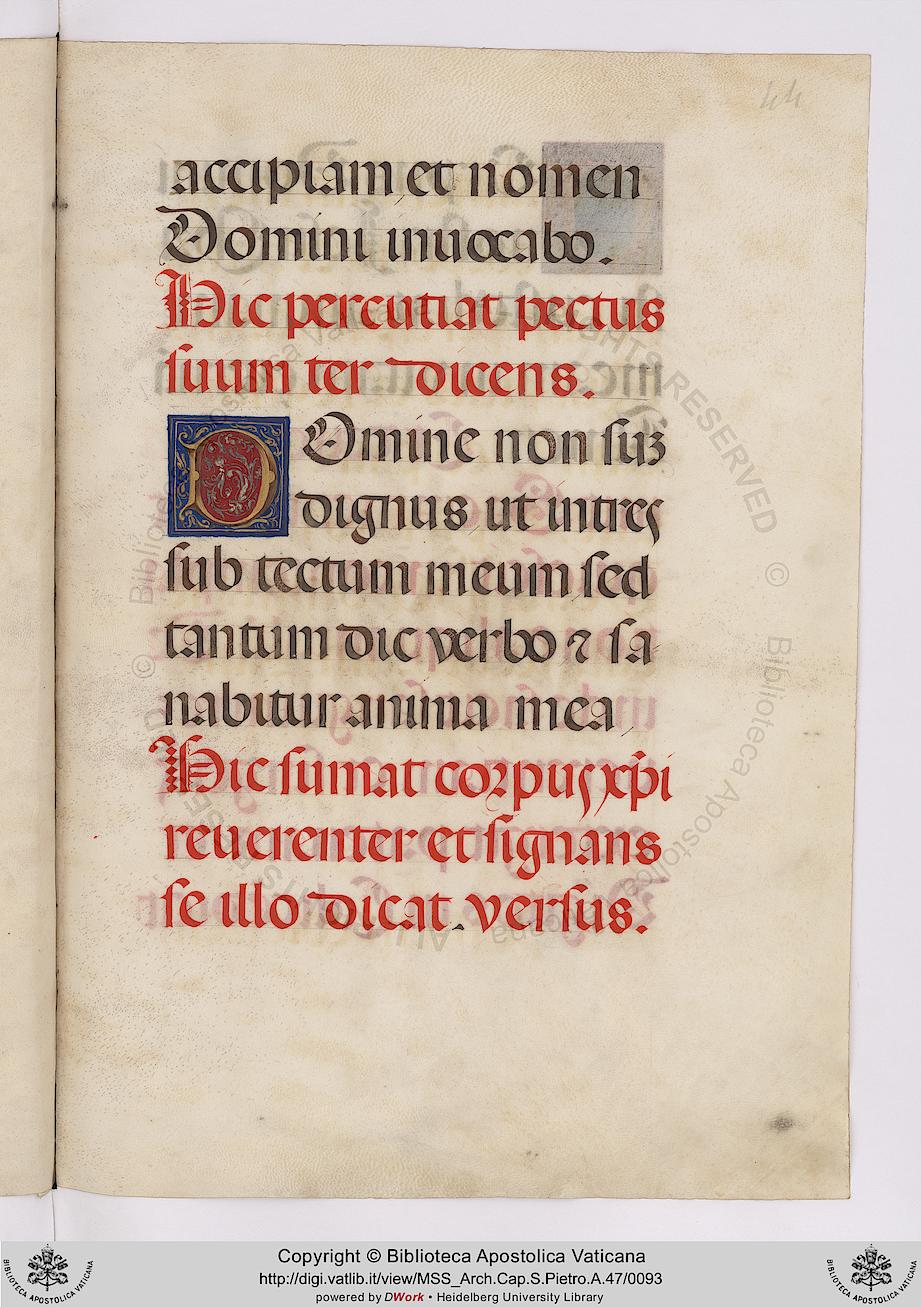 44
accipiam et nomen
Domini inuocabo.
Hic percutiat pectus
suum ter dicens.
DOmine non suꝫ
dignus ut intres
sub tectum meum sed
tantum dic verbo ⁊ sa
nabitur anima mea
Hic sumat corpus xp̄i
reuerenter et signans
se illo dicat versus.
Copyright © Biblioteca Apostolica Vaticana
http://digi.vatlib.it/view/MSS_Arch.Cap.S.Pietro.A.47/0093
powered by DWork • Heidelberg University Library
BIBLIOTECA APOSTOLICA VATICANA
BIBLIOTECA APOSTOLICA VATICANA